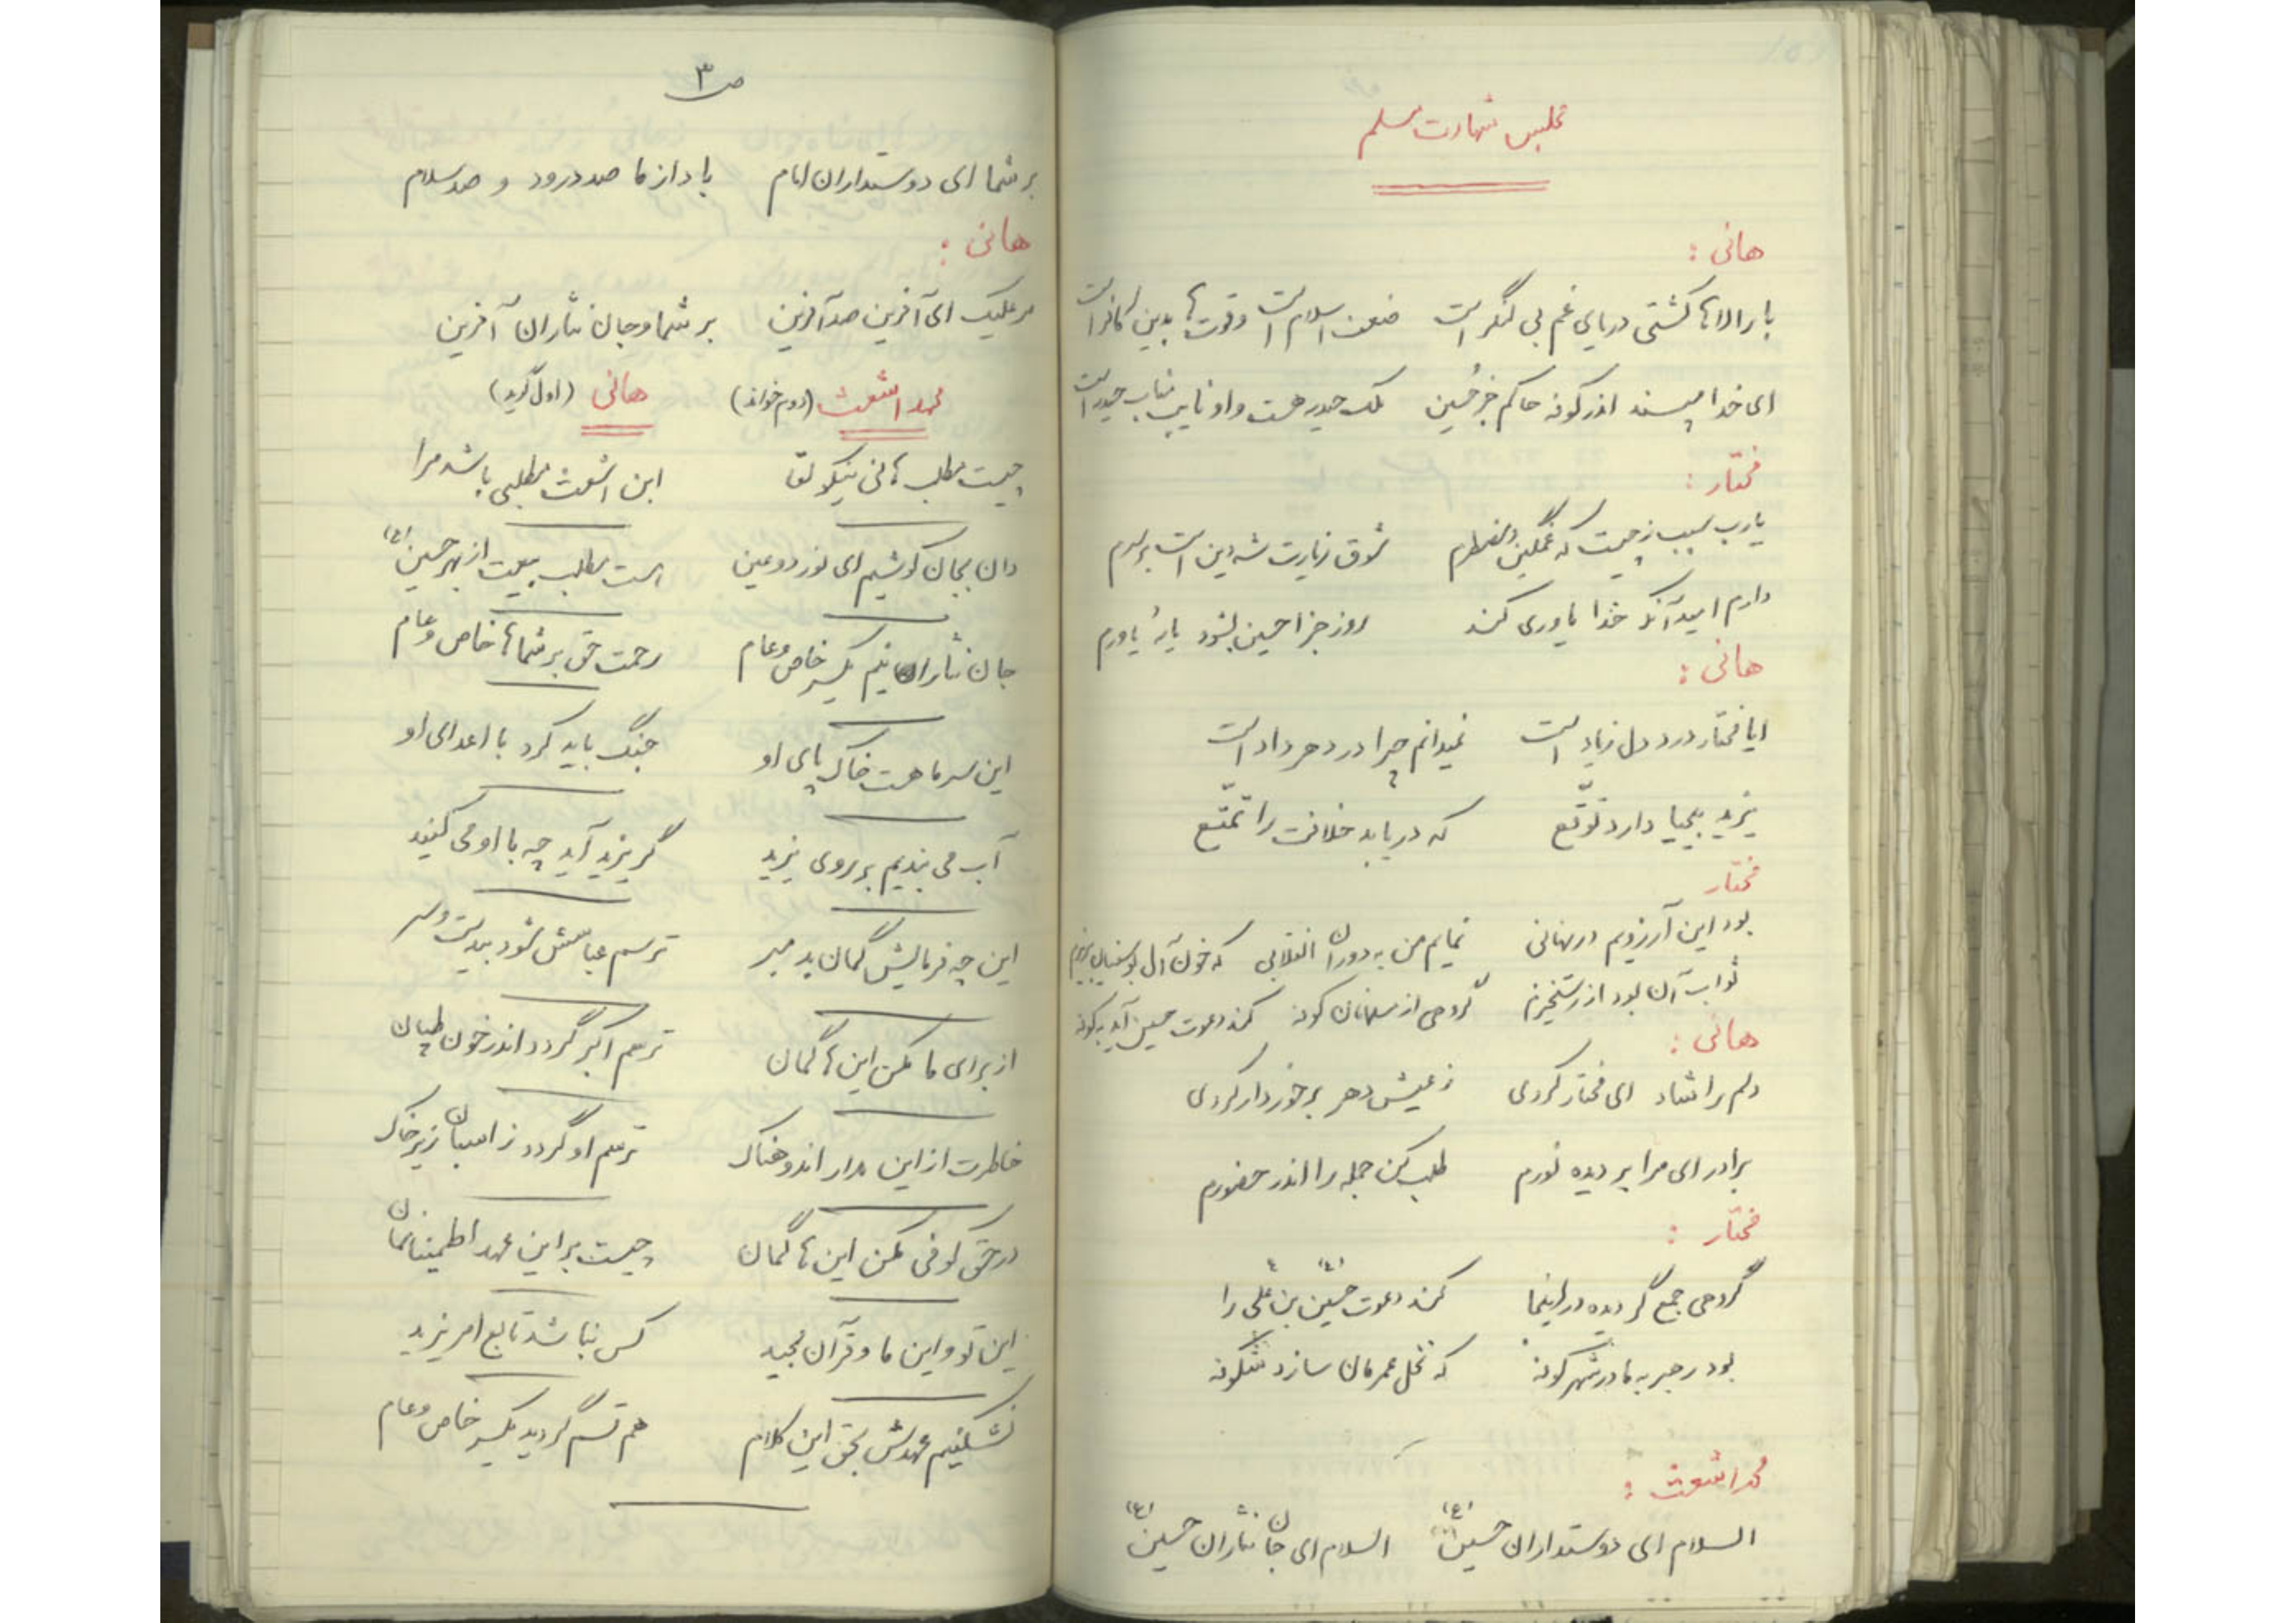 مجلس شهادت مسلم
هانی :
بارالاها کشتی دریای غم بی لنگر است ضعف اسلام است و قوتها بدین کافر است
ای خدا مپسند اندر کوفه حاکم جز حسین ملک حیدر هست و او نایب مناب حیدر است
مختار :
یارب سبب ز چیست که غمگین و مضطرم شوق زیارت شه دین است بر سرم
دارم امید آنکه خدا یاوری کند روز جزا حسین بشود یار و یاورم
هانی :
ایا مختار درد دل زیاد است نمیدانم چرا در دهر داد است
یزید بیحیا دارد توقّع که دریابد خلافت را تمتّع
مختار
بود این آرزویم در نهانی نمایم من به دوران انقلابی که خون آل بوسفیان بریزم
ثواب آن بود از رستخیزم گروهی از مسلمانان کوفه کند دعوت حسین آید به کوفه
هانی :
دلم را شاد ای مختار کردی ز عیش دهر برخوردار کردی
برادر ای مرا بر دیده نورم طلب کن جمله را اندر حضورم
مختار :
گروهی جمع گردیده در اینجا کند دعوت حسین (ع) بن علی را
بود رهبر به ما در شهر کوفه که نخل عمرمان سازد شکوفه
محمد اشعث :
السلام ای دوستداران حسین (ع) السلام ای جان نثاران حسین (ع)
ص ۳
بر شما ای دوستداران امام باد از ما صد درود و صد سلام
هانی :
مر علیک ای آفرین صد آفرین بر شما و جان نثاران آفرین
محمد اشعث (دوم خواند) هانی (اول گوید)
چیست مطلب هانی نیکو لقا ابن اشعث مطلبی باشد مرا
دان بجان کوشیم ای نور دو عین هست مطلب بیعت از بهر حسین (ع)
جان نثارانیم یکسر خاص و عام رحمت حق بر شماها خاص و عام
این سر ما هست خاک پای او جنگ باید کرد با اعدای او
آب می بندیم بر روی یزید گر یزید آید چه با او می کنید
این چه فرمایش گمان بد مبر ترسم عباسش شود بیدست و سر
از برای ما مکن این ها گمان ترسم اکبر گردد اندر خون طپان
خاطرت از این مدار اندوهناک ترسم او گردد ز اسبان زیر خاک
در حق کوفی مکن این ها گمان چیست بر این عهد اطمینانمان
این تو و این ما و قرآن مجید کس نباشد تابع امر یزید
نشکنیم عهدش بحق این کلام هم قسم گردید یکسر خاص و عام